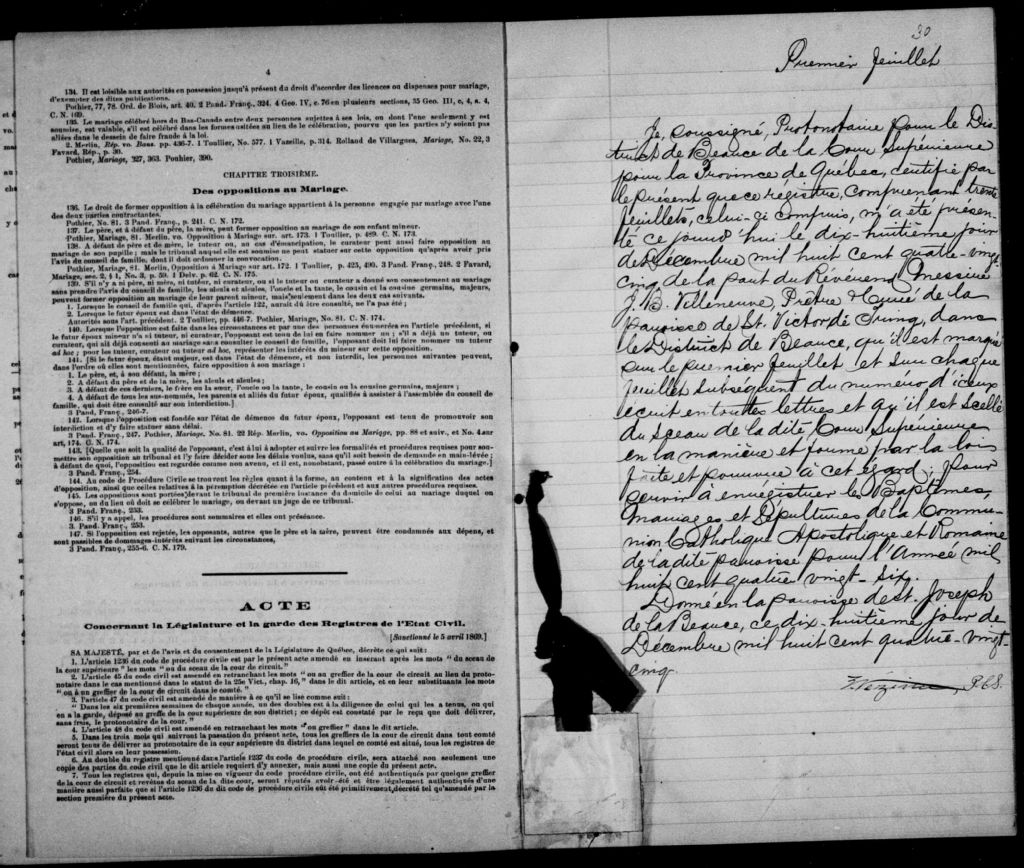 4
134. Il est loisible aux autorités en possession jusqu'à présent du droit d'accorder des licences ou dispenses pour mariage,
d'exempter des dites publications.
Pothier, 77, 78. Ord. de Blois, art. 40. 2 Pand. Franç., 324. 4 Geo. IV, c. 76 en plusieurs sections, 35 Geo. III, c, 4, s. 4,
C. N. 169.
135. Le mariage célébré hors du Bas-Canada entre deux personnes sujettes à ses lois, ou dont l'une seulement y est
soumise, est valable, s'il est célébré dans les formes usitées au lieu de la célébration, pourvu que les parties n'y soient pas
allées dans le dessein de faire fraude à la loi.
2. Merlin, Rép. vo. Bans. pp. 436-7. 1 Toullier, No. 577. 1 Vazeille, p. 314. Rolland de Villargues, Mariage, No. 22, 3
Favard, Rép., p. 30.
Pothier, Mariage, 327, 363. Pouhier, 390.
CHAPITRE TROISIÈME.
Des oppositions au Mariage.
136. Le droit de former opposition à la célébration du mariage appartient à la personne engagée par mariage avec l'une
des deux parties contractantes.
Pothier, No. 81. 3 Pand. Franç., p. 241. C. N. 172.
137. Le père, et à défaut du père, la mère, peut former opposition au mariage de son enfant mineur.
Pothier, Mariage, 81. Merlin, vo. Opposition à Mariage sur. art. 173. 1 Toullier, p. 489. C. N. 173.
138. A défaut de père et de mère, le tuteur ou, au cas d'émancipation, le curateur peut aussi faire opposition au
mariage de son pupille; mais le tribunal auquel elle est soumise ne peut statuer sur cette opposition qu'après avoir pris
l'avis du conseil de famille, dont il doit ordonner la convocation.
Pothier, Mariage, 81. Merlin, Opposition à Mariage sur art. 172. 1 Toullier, p. 423, 490. 3 Pand. Franç., 248. 2 Favard,
Mariage, sec. 2, § 1, No. 3, p. 59. 1 Delv. p. 62. C. N. 175.
139. S'il n'y a ni père, ni mère, ni tuteur, ni curateur, ou si le tuteur ou curateur a donné son consentement au mariage
sans prendre l'avis du conseil de famille, les aïeuls et aïeules, l'oncle et la tante, le cousin et la cousine germains, majeurs,
peuvent former opposition au mariage de leur parent mineur, mais seulement dans les deux cas suivants.
1. Lorsque le conseil de famille qui, d'après l'article 122, aurait dû être consulté, ne l'a pas été ;
2. Lorsque le futur époux est dans l'état de démence.
Autorités sous l'art. précédent. 2 Toullier, pp. 446-7. Pothier, Mariage, No. 81. C. N. 174.
140. Lorsque l'opposition est faite dans les circonstances et par une des personnes énumérées en l'article précédent, si
le futur époux mineur n'a ni tuteur, ni curateur, l'opposant est tenu de lui en faire nommer un ; s'il a déjà un tuteur, ou
curateur, qui ait déjà consenti au mariage sans consulter le conseil de famille, l'opposant doit lui faire nommer un tuteur
ad hoc ; pour les tuteur, curateur ou tuteur ad hoc, représenter les intérêts du mineur sur cette opposition.
141. [Si le futur époux, étant majeur, est dans l'état de démence, et non interdit, les personnes suivantes peuvent,
dans l'ordre où elles sont mentionnées, faire opposition à son mariage :
1. Le père, et, à son défaut, la mère ;
2. A défaut du père et de la mère, les aïeuls et aïeules ;
3. A défaut de ces derniers, le frère ou la sœur, l'oncle ou la tante, le cousin ou la cousine germains, majeurs ;
4. A défaut de tous les sus-nommés, les parents et alliés du futur époux, qualifiés à assister à l'assemblée du conseil de
famille, qui doit être consulté sur son interdiction.]
3 Pand. Franç., 246-7.
142. Lorsque l'opposition est fondée sur l'état de démence du futur époux, l'opposant est tenu de promouvoir son
interdiction et d'y faire statuer sans délai.
3 Pand. Franç., 247. Pothier, Mariage. No. 81. 22 Rép. Merlin, vo. Opposition au Mariage, pp. 88 et suiv., et No. 4 sur
art, 174. C. N. 174.
143. [Quelle que soit la qualité de l'opposant, c'est à lui à adopter et suivre les formalités et procédures requises pour sou-
mettre son opposition au tribunal et l'y faire décider sous les délais voulus, sans qu'il soit besoin de demande en main-levée ;
à défaut de quoi, l'opposition est regardée comme non avenu, et il est, nonobstant, passé outre à la célébration du mariage.]
3 Pand. Franç., 254.
144. Au code de Procédure Civile se trouvent les règles quant à la forme, au contenu et à la signification des actes
d'opposition, ainsi que celles relatives à la péremption décrétée en l'article précédent et aux autres procédures requises.
145. Les oppositions sont portées devant le tribunal de première instance du domicile de celui au mariage duquel on
s'oppose, ou de lieu où doit se célébrer le mariage, ou devant un juge de ce tribunal.
3 Pand. Franç., 253.
146. S'il y a appel, les procédures sont sommaires et elles ont préséance.
3. Pand. Franç., 253.
147. Si l'opposition est rejetée, les opposants, autres que le père et la mère, peuvent être condamnés aux dépens, et
sont passibles de dommages-intérêts suivant les circonstances,
3 Pand. Franç., 255-6. C. N. 179.
ACTE
Concernant la Législature et la garde des Registres de l'Etat Civil.
[Sanctionné le 5 avril 1869.]
SA MAJESTÉ, par et de l'avis et du consentement de la Législature de Québec, décrète ce qui suit:
1. L'article 1236 du code de procédure civile est par le présent acte amendé en insérant après les mots " du sceau de
la cour supérieure " les mots " ou du sceau de la cour de circuit."
2. L'article 45 du code civil est amendé en retranchant les mots " ou au greffier de la cour de circuit au lieu du proto-
notaire dans le cas mentionné dans le statut de la 25e Vict., chap. 16, " dans le dit article, et en leur substituant les mots
" ou à un greffier de la cour de circuit dans le comté."
3. l'article 47 du code civil est amendé de manière à ce qu'il se lise comme suit :
" Dans les six premières semaines de chaque année, un des doubles est à la diligence de celui qui les a tenus, ou qui
en a la garde, déposé au greffe de la cour supérieure de son district; ce dépôt est constaté par le reçu que doit délivrer,
sans frais, le protonotaire de la cour. "
4. L'article 48 du code civil est amendé en retranchant les mots " on greffier " dans le dit article.
5. Dans les trois mois qui suivront la passation du présent acte, tous les greffiers de la cour de circuit dans tout comté
seront tenus de délivrer au protonotaire de la cour supérieure du district dans lequel ce comté est situé, tous les registres de
l'état civil alors en leur possession.
6. Au double du registre mentionné dans l'article 1237 du code de procédure civile, sera attaché non seulement une
copie des parties du code civil que le dit article requiert d'y annexer, mais aussi une copie du présent acte.
7. Tous les registres qui, depuis la mise en vigueur du code procédure civile, ont été authentiqués par quelque greffier
de la cour de circuit et revêtus du sceau de la dite cour, seront réputés avoir été et être légalement authentiqués d'une
manière aussi parfaite que si l'article 1236 du dit code de procédure civile eût été primitivement décrété tel qu'amendé par la
section première du présent acte.
30
Premier feuillet
Je, soussigné, Protonotaire pour le Dis-
trict de Beauce de la Cour Supérieure
pour la Province de Québec, certifie par
le présent que ce registre, comprenant trente
feuillets, celui-ci compris, m'a été présen-
té ce jourd'hui le dix-huitième jour
de Décembre mil huit cent quatre-vingt
cinq de la part du Révérend Messire
J. B. Villeneuve, Prêtre & Curé de la
paroisse de St. Victor de Tring, dans
le District de Beauce, qu'il est marqué
sur le premier feuillet et sur chaque
feuillet subséquent du numéro d'iceux
écrit en toutes lettres et qu'il est scellé
du sceau de la dite Cour Supérieure
en la manière et forme par la loi
faite et pourvue à cet égard; pour
servir à enrégistrer les Baptêmes,
Mariages et Sépultures de la Commu-
nion Catholique Apostolique et Romaine
de la dite paroisse pour l'Année mil
huit cent quatre vingt-six.
Donné en la paroisse de St. Joseph
de la Beauce, ce dix-huitième jour de
Décembre mil huit cent quatre-vingt-
cinq.
Vézina, P.C.S.